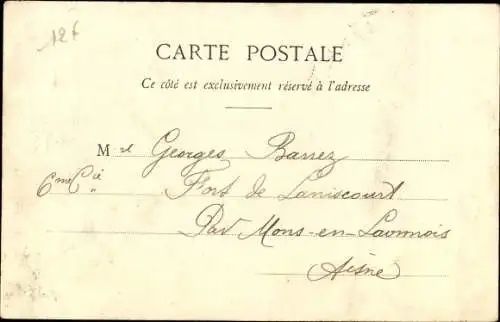 12f
CARTE POSTALE
Ce côté est exclusivement réservé à l'adresse
M el Georges Barrez
6me Cie Fort de Laniscourt
Par Mons-en-Laonnois
Aisne